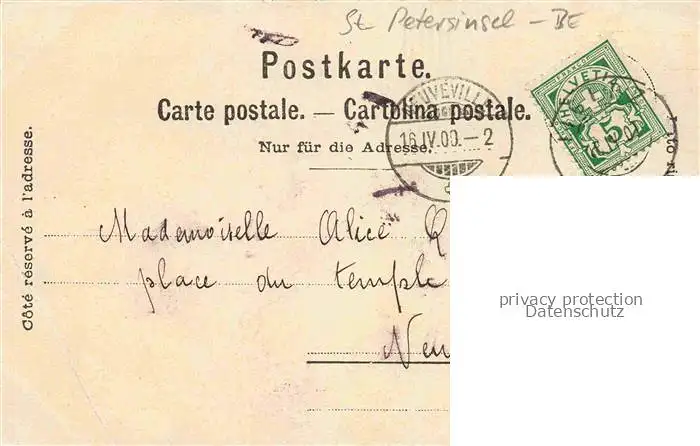 St. Petersinsel - BE
Postkarte.
Carte postale. — Cartolina postale.
Nur für die Adresse.
NEUVEVILLE
16.IV.00.-2
HELVETIA
5
Côté réservé à l'adresse.
Mademoiselle Alice
place du temple
privacy protection
Datenschutz